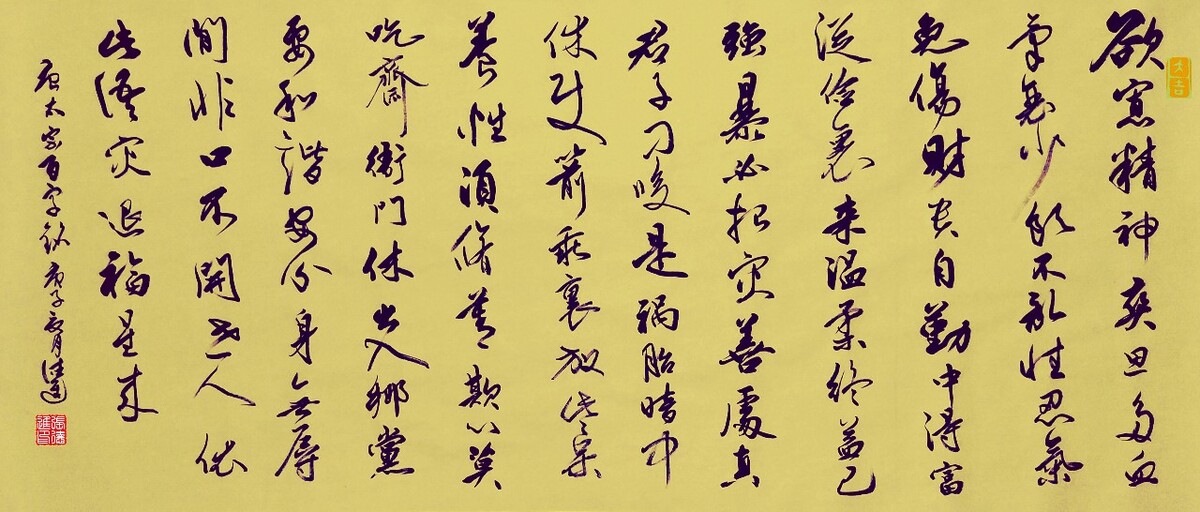 大吉
欲寡精神爽思多血
氣衰少飲不亂性忍氣
免傷財貴自勤中得富
從儉裏来温柔終益己
強暴必招灾善處真
君子刁唆是禍胎暗中
休使箭乖裏放些呆
養性須脩善欺心莫
吃齋衙門休出入鄉黨
要和諧安分身無辱
閒非口不開世人依
此語灾退福星来
唐太宗百字銘 庚子夏月